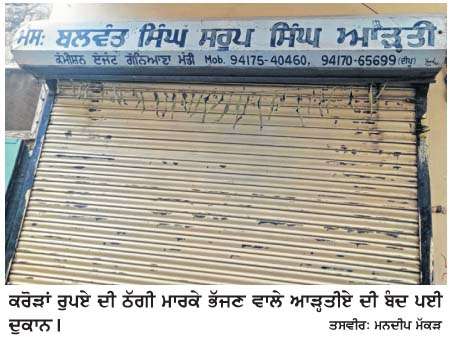 ਮੈਸ: ਬਲਵੰਤ ਸਿੰਘ ਸਰੂਪ ਸਿੰਘ ਆੜ੍ਹਤੀ
ਕਮੀਸ਼ਨ ਏਜੰਟ ਗੋਨਿਆਣਾ ਮੰਡੀ Mob. 94175-40460, 94170-65699 (ਦੀਪੂ)
ਕਰੋੜਾਂ ਰੁਪਏ ਦੀ ਠੱਗੀ ਮਾਰਕੇ ਭੱਜਣ ਵਾਲੇ ਆੜ੍ਹਤੀਏ ਦੀ ਬੰਦ ਪਈ
ਦੁਕਾਨ।
ਤਸਵੀਰ: ਮਨਦੀਪ ਮੱਕੜ